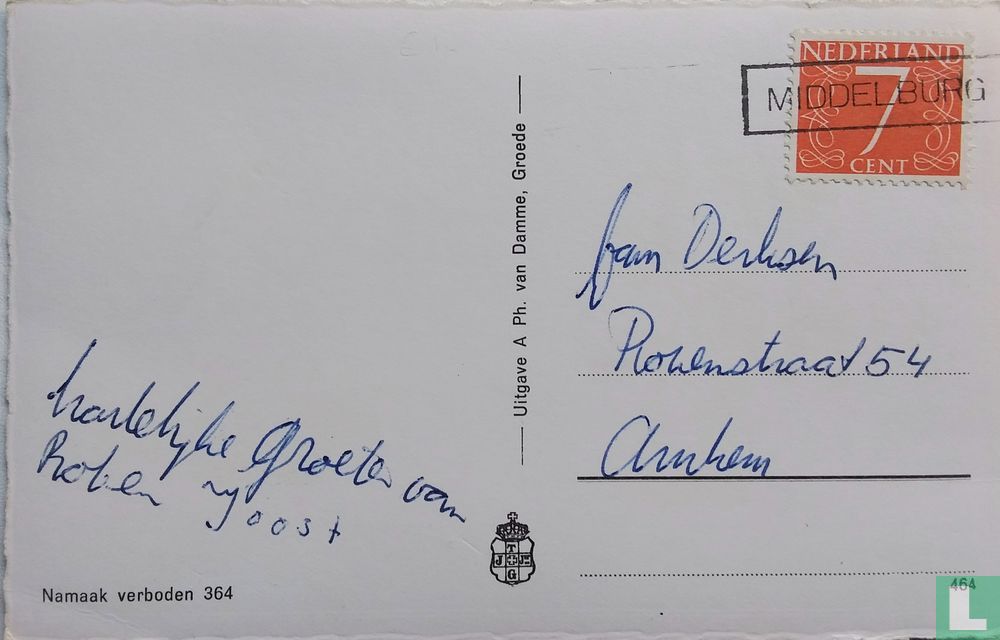 NEDERLAND
7
CENT
MIDDELBURG
Uitgave A Ph. van Damme, Groede
Derksen
straat 54
Arnhem
hartelijke Groeten van
Joost
T
J Jr
G
Namaak verboden 364
464
L